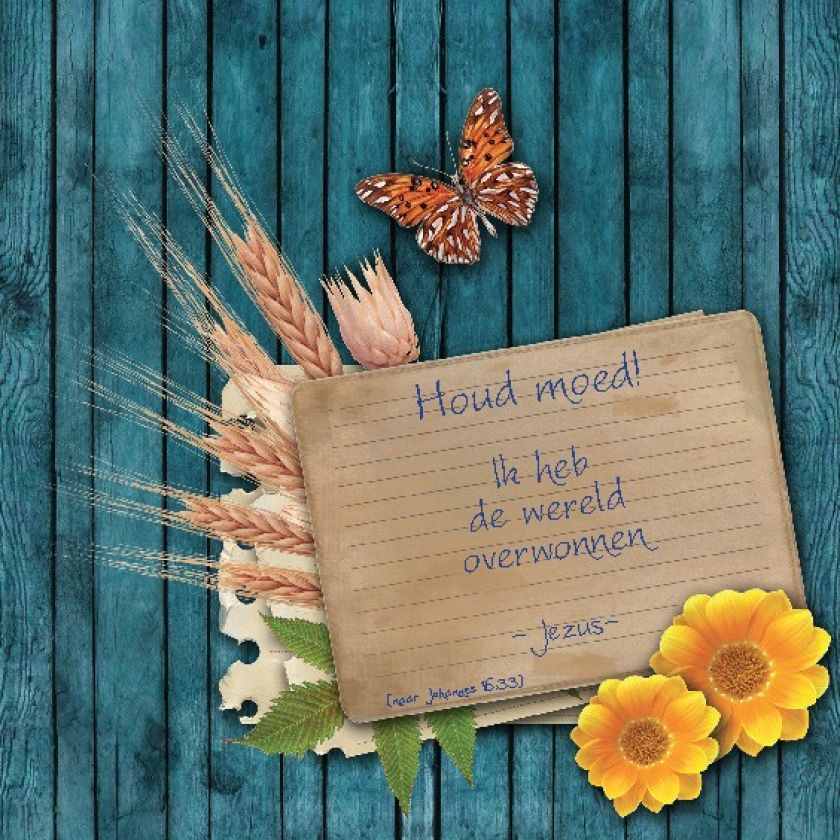 Houd moed!
Ik heb
de wereld
overwonnen
- Jezus -
[naar Johannes 16:33]